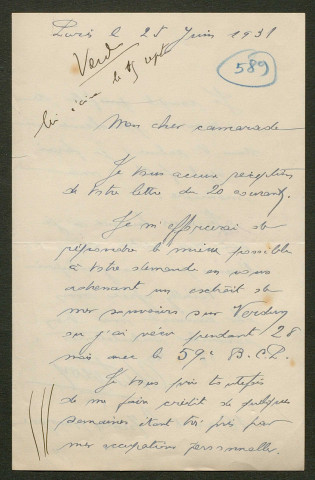 Paris le 25 Juin 1931
589
Mon cher camarade
Je vous accuse réception
de votre lettre du 20 courant.
Je m'efforcerai de
répondre le mieux possible
à votre demande en vous
adressant un extrait de
mes souvenirs sur Verdun
où j'ai vécu pendant 28
mois avec le 59e B.C.P.
Je vous prie toutefois
de me faire crédit de quelques
semaines étant très pris par
mes occupations personnelles.